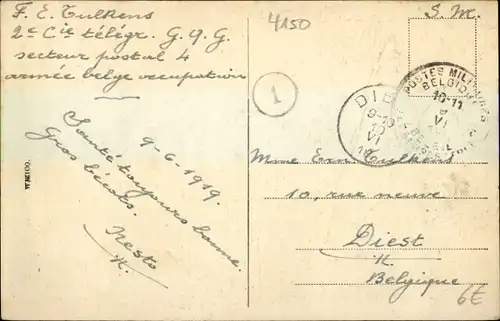 F. E. Tulkens
2e Cie télégr. G.Q.G.
secteur postal 4
armée belge occupation
9-6-1919.
Santé toujours bonne.
Gros bécots.
Nesto
W.MEIGO.
4150
1
S. M.
POSTES MILITAIRES
BELGIQUE
10-11
VI
DIE
9-10
10
VI
Mme Ern. Tulkens
10, rue neuve
Diest
Belgique
6€